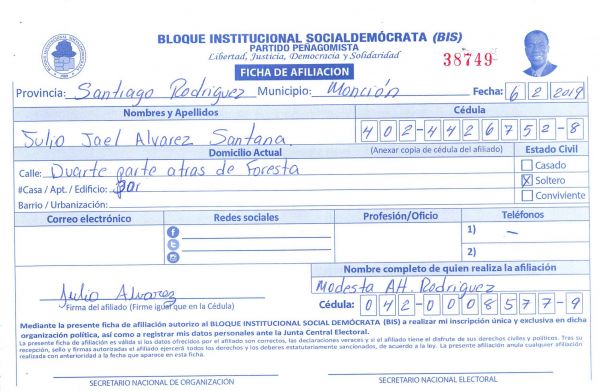 BLOQUE INSTITUCIONAL SOCIALDEMÓCRATA (BIS)
PARTIDO PEÑAGOMISTA
Libertad, Justicia, Democracia y Solidaridad
38749
FICHA DE AFILIACION
Provincia: Santiago Rodríguez Municipio: Monción Fecha: 6 2 2019
Nombres y Apellidos Cédula
Julio Jael Alvarez Santana. 402-4426752-8
Domicilio Actual (Anexar copia de cédula del afiliado) Estado Civil
Calle: Duarte parte atras de Foresta Casado
#Casa / Apt. / Edificio: X Soltero
Barrio / Urbanización: Conviviente
Correo electrónico Redes sociales Profesión/Oficio Teléfonos
1) –
2)
Nombre completo de quien realiza la afiliación
Modesta Alt. Rodriguez
Julio Alvarez
Firma del afiliado (Firme igual que en la Cédula) Cédula: 042-0008577-9
Mediante la presente ficha de afiliación autorizo al BLOQUE INSTITUCIONAL SOCIAL DEMÓCRATA (BIS) a realizar mi inscripción única y exclusiva en dicha
organización política, así como a registrar mis datos personales ante la Junta Central Electoral.
La presente ficha de afiliación es válida si los datos ofrecidos por el afiliado son correctos, las declaraciones veraces y si el afiliado tiene el disfrute de sus derechos civiles y políticos. Tras su
recepción, sello y firmas autorizadas el afiliado ejercerá todos los derechos y los deberes estatutariamente sancionados, de acuerdo a la ley. La presente afiliación anula cualquier afiliación
realizada con anterioridad a la fecha que aparece en esta ficha.
SECRETARIO NACIONAL DE ORGANIZACIÓN SECRETARIO NACIONAL ELECTORAL